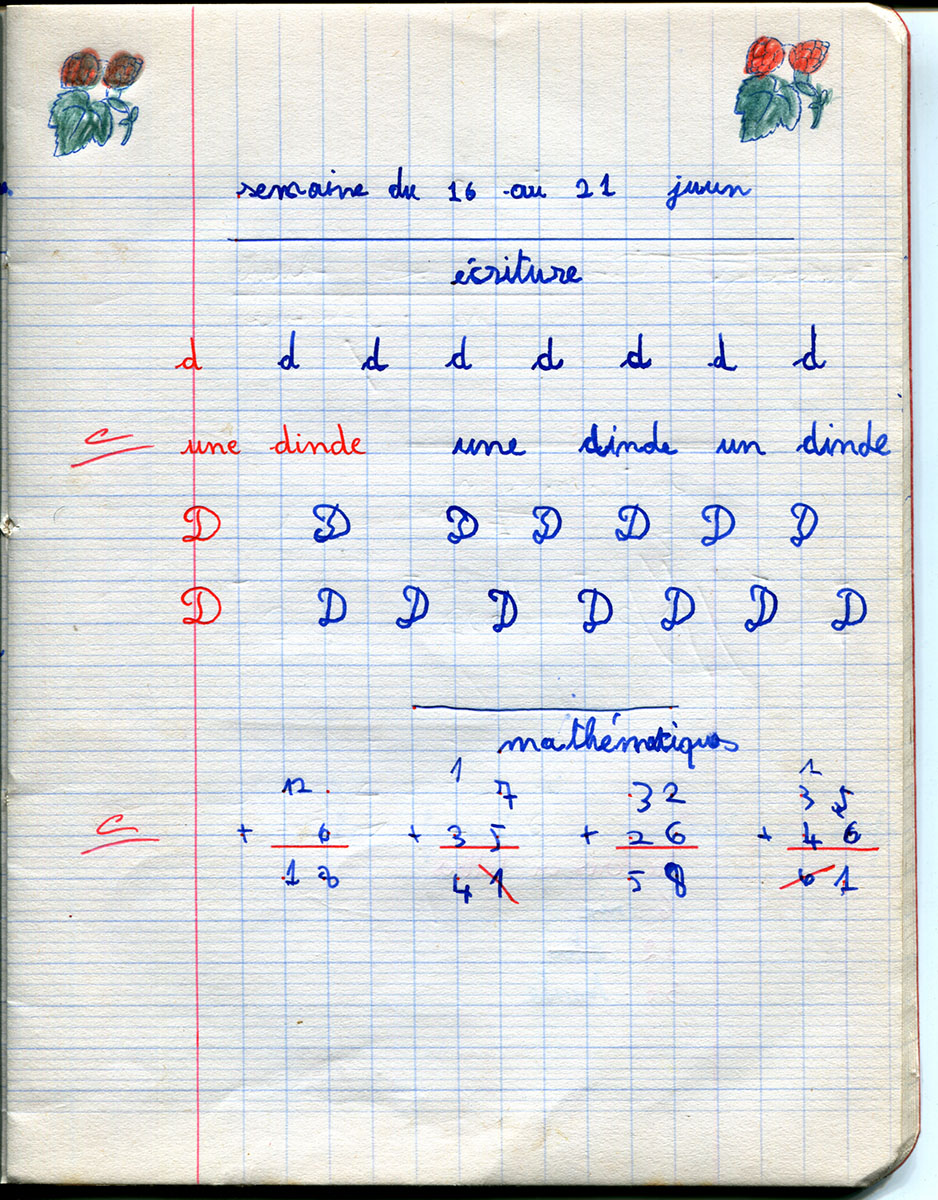 semaine du 16 au 21 juun
écriture
d d d d d d d d
C une dinde une dinde un dinde
D D D D D D D
D D D D D D D D
mathématiques
1 1
12 7 32 35
C + 6 + 35 + 26 + 46
18 41 58 61